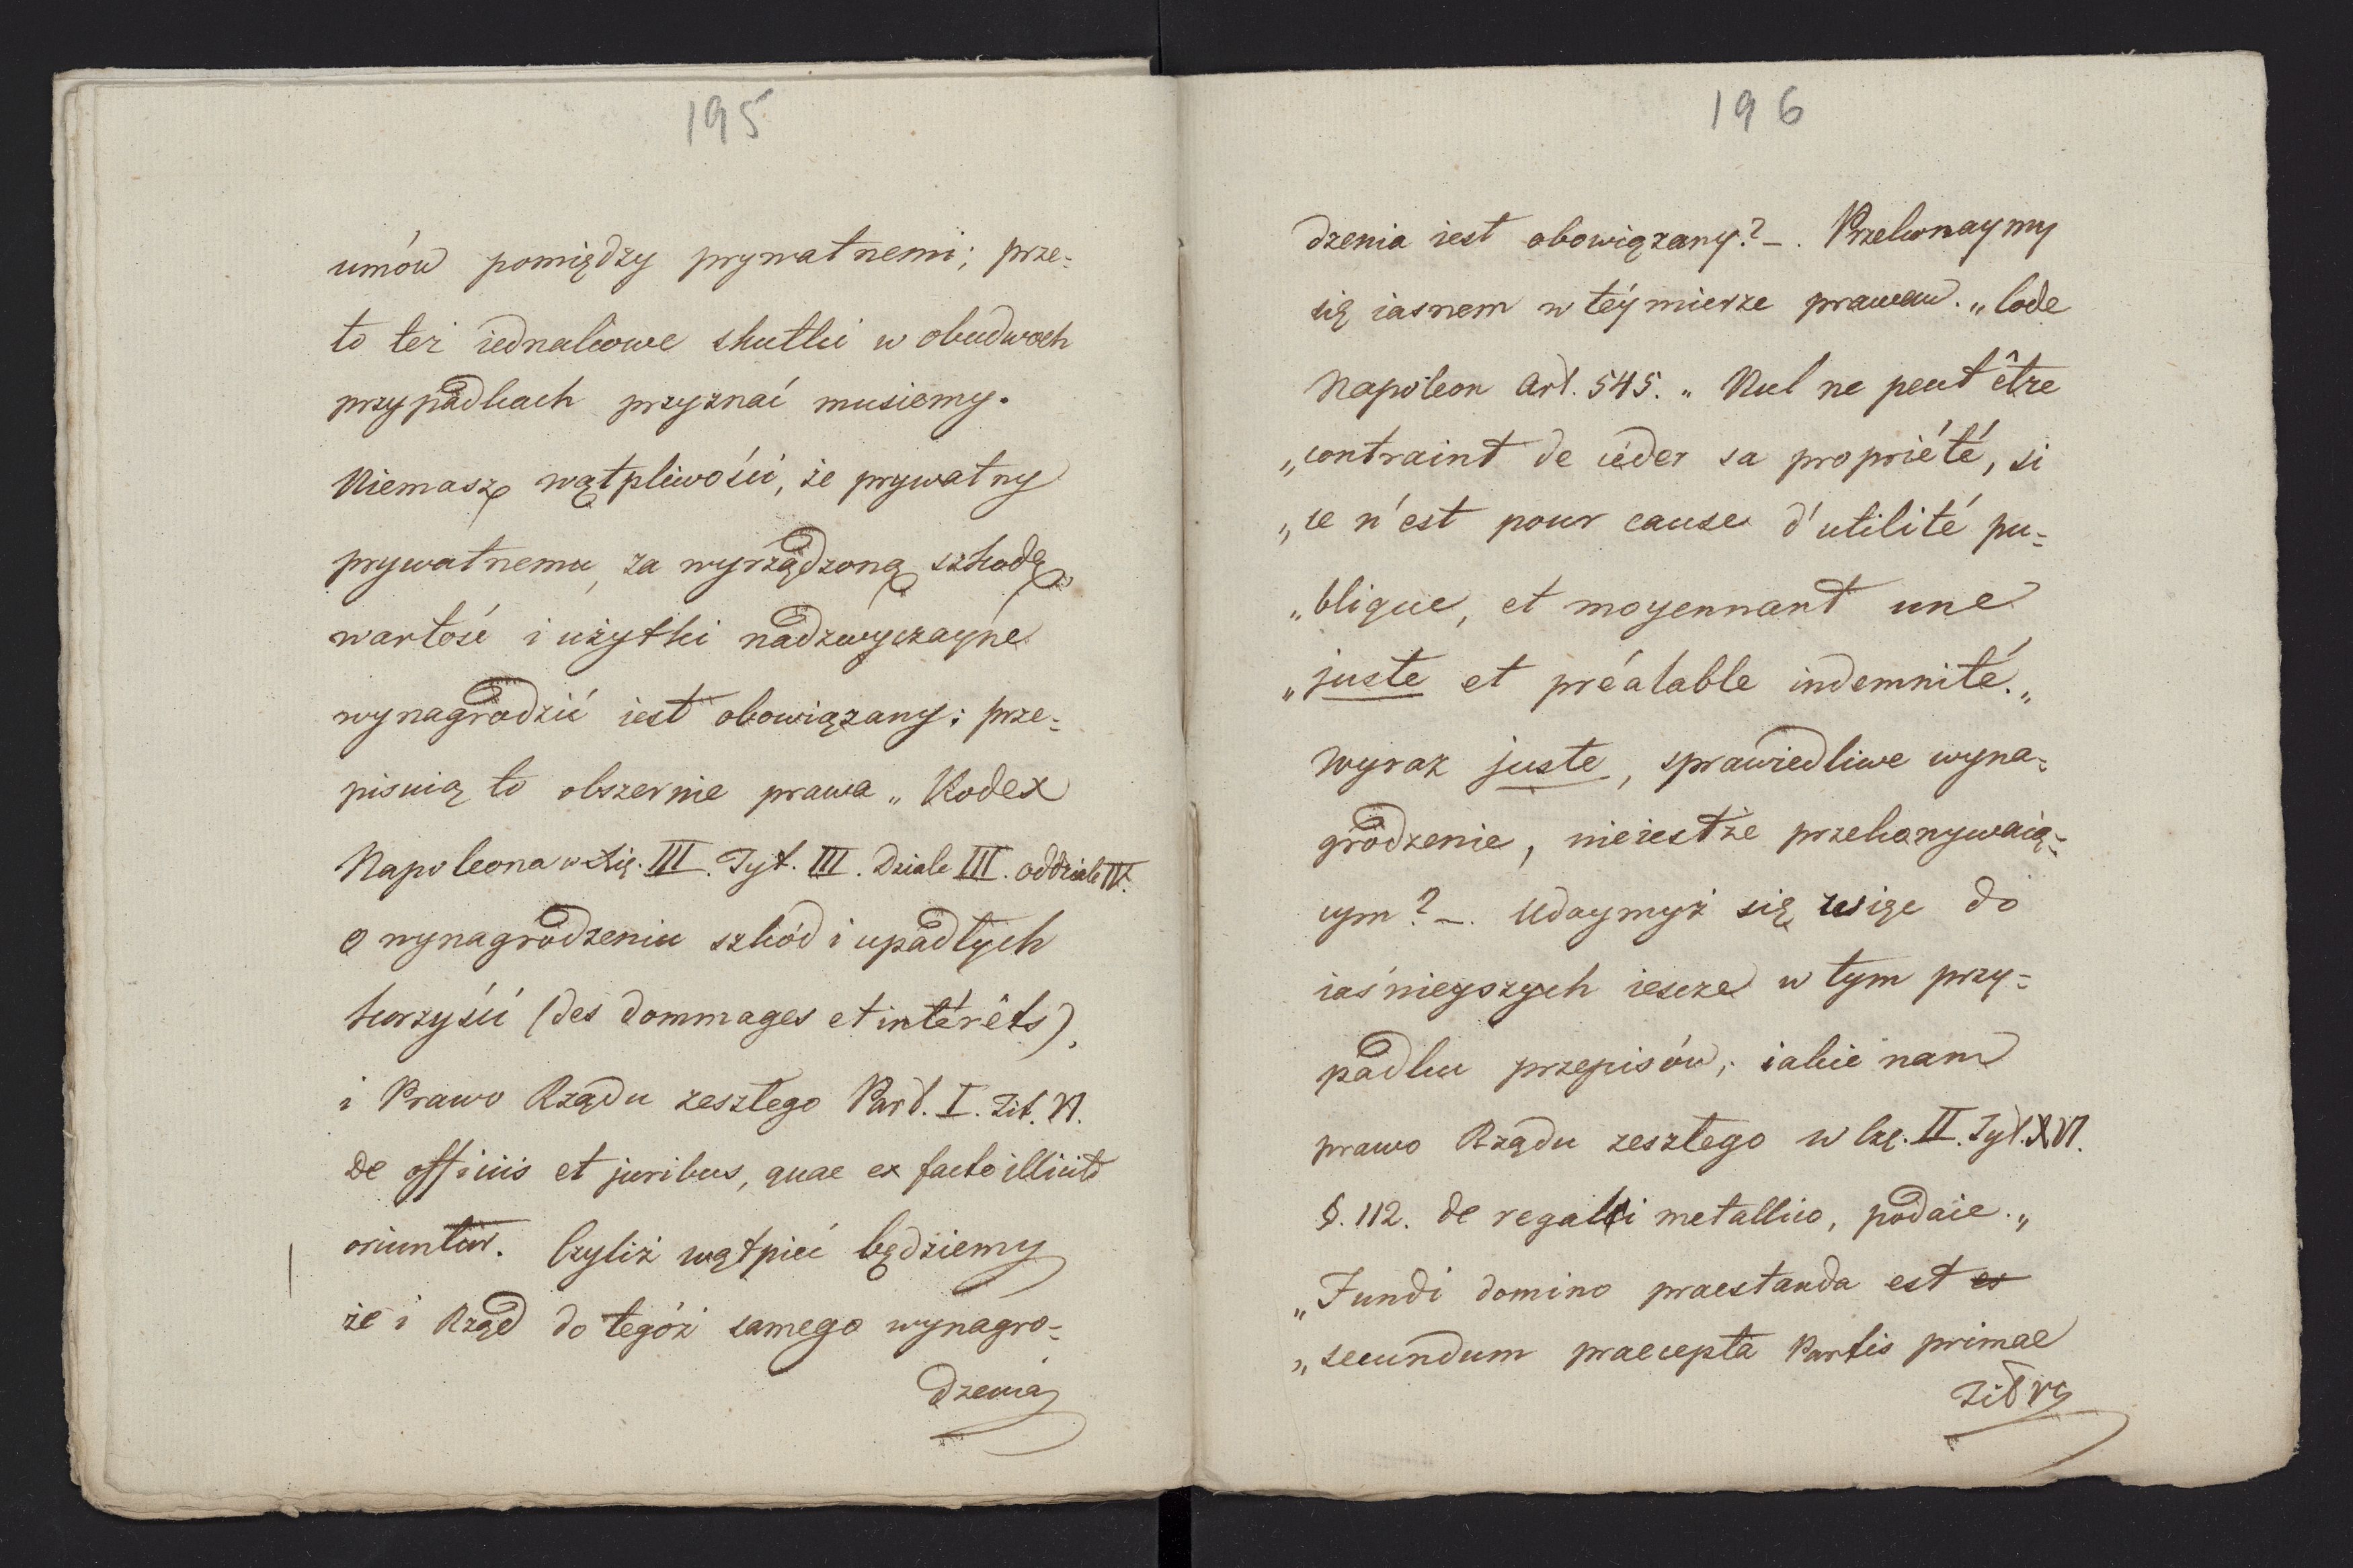 195
umów pomiędzy prywatnemi; prze=
to też iednakowe skutki w obudwoch
przypadkach przyznać musiemy.
Niemasz wątpliwości, że prywatny
prywatnemu, za wyrządzoną szkodę,
wartość i użytki nadzwyczayne
wynagrodzić iest obowiązany; prze=
pisuią to obszernie prawa „ Kodex
Napoleona w Xię. III. Tyt. III. Dziale III. oddziale IV.
O wynagrodzeniu szkód i upadłych
korzyści (des dommages et intérêts),
i Prawo Rządu zeszłego Part. I. Tit. VI.
De officiis et juribus, quae ex facto illicito
oriuntur. Czyliż wątpić będziemy
że i Rząd do tegóż samego wynagro=
dzenia
196
dzenia iest obowiązany? _. Przekonaymy
się iasnem w téy mierze prawem. „ Code
Napoleon Art. 545. „ Nul ne peut être
„ contraint de céder sa propriété, si
„ ce n'est pour cause d'utilité pu=
„ blique, et moyennant une
„ juste et préalable indemnité. „
Wyraz juste, sprawiedliwe wyna=
grodzenie, nieiestże przekonywaią=
cym? _. Udaymyż się więc do
iaśnieyszych iescze w tym przy=
padku przepisów; iakie nam
prawo Rządu zeszłego w Czę. II. Tyt. XVI.
§. 112. de regali metallico, podaie. „
„ Fundi domino praestanda est es
„ secundum praecepta Partis primae
Tit VI